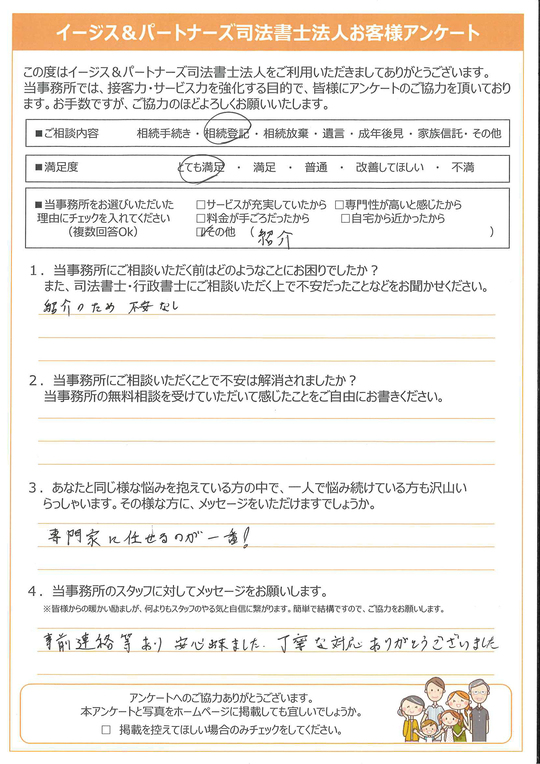 イージス＆パートナーズ司法書士法人お客様アンケート
この度はイージス＆パートナーズ司法書士法人をご利用いただきましてありがとうございます。
当事務所では、接客力・サービス力を強化する目的で、皆様にアンケートのご協力を頂いており
ます。お手数ですが、ご協力のほどよろしくお願いいたします。
■ご相談内容　相続手続き・相続登記・相続放棄・遺言・成年後見・家族信託・その他
■満足度　とても満足・満足・普通・改善してほしい・不満
■当事務所をお選びいただいた　□サービスが充実していたから　□専門性が高いと感じたから
理由にチェックを入れてください　□料金が手ごろだったから　□自宅から近かったから
（複数回答Ok）　☑その他（紹介）
１．当事務所にご相談いただく前はどのようなことにお困りでしたか？
また、司法書士・行政書士にご相談いただく上で不安だったことなどをお聞かせください。
紹介のため 不安なし
２．当事務所にご相談いただくことで不安は解消されましたか？
当事務所の無料相談を受けていただいて感じたことをご自由にお書きください。
３．あなたと同じ様な悩みを抱えている方の中で、一人で悩み続けている方も沢山い
らっしゃいます。その様な方に、メッセージをいただけますでしょうか。
専門家に任せるのが一番！
４．当事務所のスタッフに対してメッセージをお願いします。
※皆様からの暖かい励ましが、何よりもスタッフのやる気と自信に繋がります。簡単で結構ですので、ご協力をお願いします。
事前連絡等あり 安心出来ました。丁寧な対応ありがとうございました
アンケートへのご協力ありがとうございます。
本アンケートと写真をホームページに掲載しても宜しいでしょうか。
□ 掲載を控えてほしい場合のみチェックをしてください。